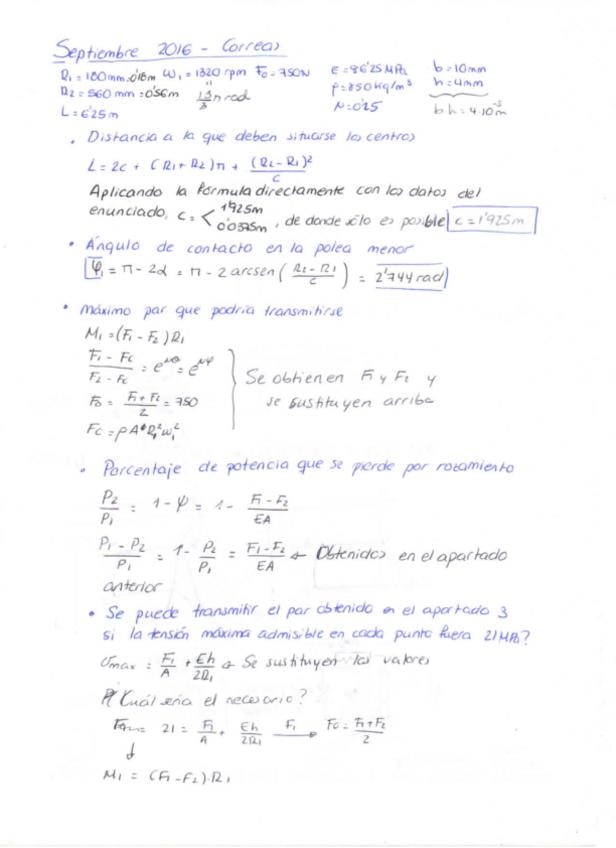 Septiembre 2016 - Correas
R₁ = 180mm = 0'18m ω₁ = 1320 rpm F₀ = 750N E = 86'25 MPa b = 10mm
R₂ = 560 mm = 0'56m " ρ = 850 kg/m³ h = 4mm
L = 6'25m μ = 0'25 bh = 4·10⁻⁵
• Distancia a la que deben situarse los centros
L = 2c + (R₁+R₂)π + (R₂-R₁)²/c
Aplicando la fórmula directamente con los datos del
enunciado, c = < 1'925m 0'0375m , de donde sólo es posible c = 1'925m
• Ángulo de contacto en la polea menor
φ₁ = π - 2α = π - 2 arcsen ( R₂-R₁/c ) = 2'744 rad
• Máximo par que podría transmitirse
M₁ = (F₁ - F₂) R₁
F₁ - Fc / F₂ - Fc = e^μθ = e^μφ
F₀ = F₁+F₂/2 = 750
Se obtienen F₁ y F₂ y
se sustituyen arriba
Fc = ρ A R₁² ω₁²
• Porcentaje de potencia que se pierde por rozamiento
P₂/P₁ = 1 - ψ = 1 - F₁-F₂/EA
P₁-P₂/P₁ = 1 - P₂/P₁ = F₁-F₂/EA ← Obtenidos en el apartado
anterior
• Se puede transmitir el par obtenido en el apartado 3
si la tensión máxima admisible en cada punto fuera 21 MPa?
σmax = F₁/A + Eh/2R₁ ← Se sustituyen los valores
¿Cuál sería el necesario?
21 = F₁/A + Eh/2R₁ F₁→ F₀ = F₁+F₂/2
↓
M₁ = (F₁-F₂)·R₁